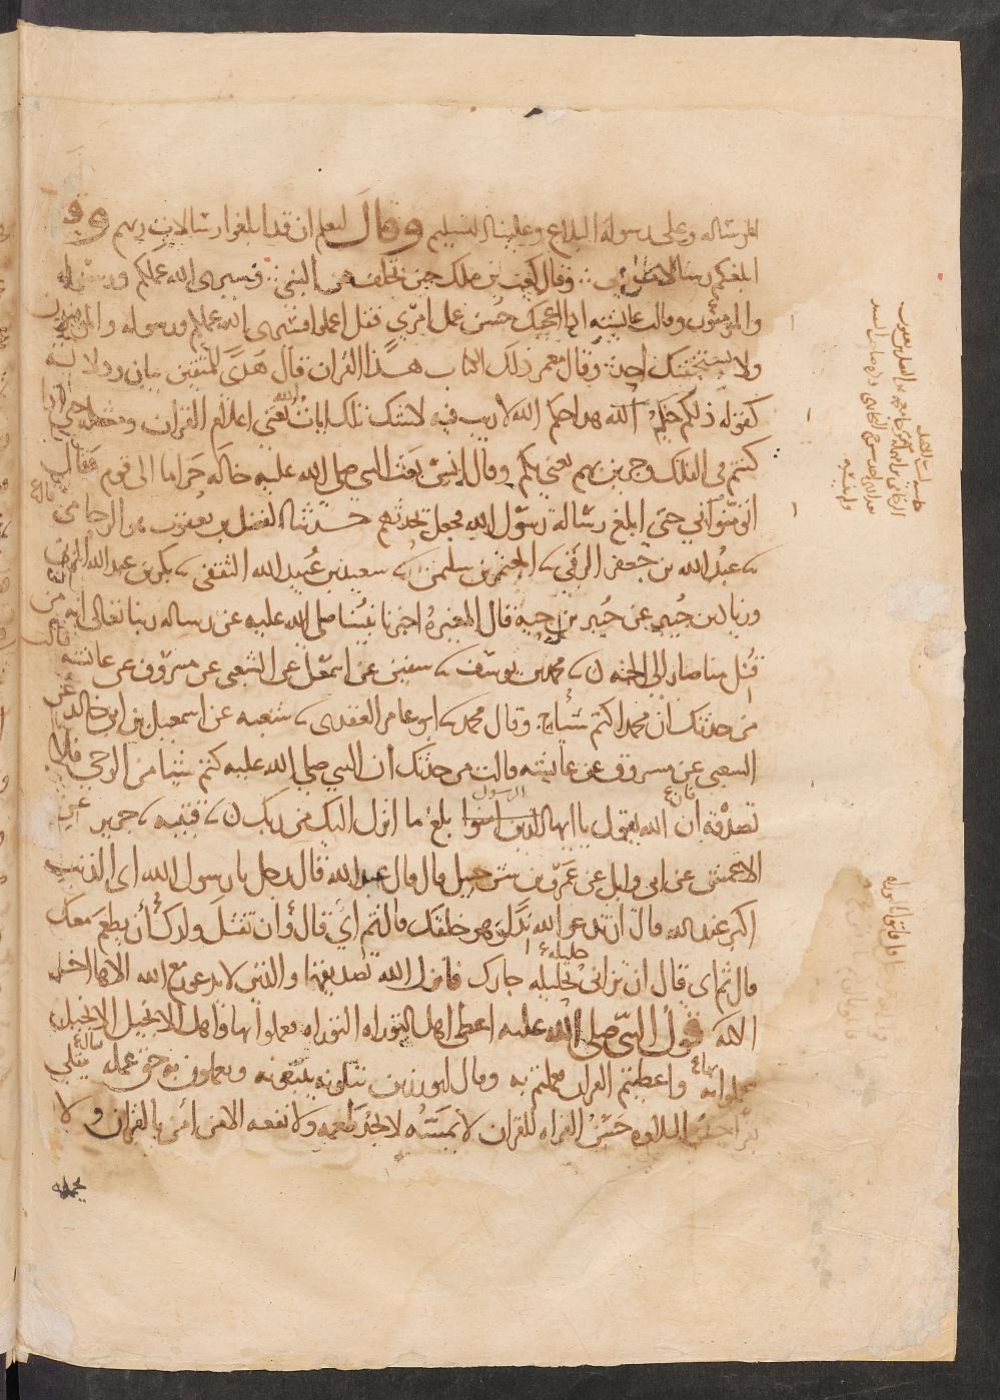 الرساله وعلى رسوله البلاغ وعلينا التسليم وقال ليعلم ان قد ابلغوا رسالات ربهم وقال
ابلغكم رسالات ربي وقال كعب بن ملك حين تخلف عن النبي فسيرى الله عملكم ورسوله
والمؤمنون وقالت عايشه اذا اعجبك حسن عمل امرئ فقل اعملوا فسيرى الله عملكم ورسوله والمؤمنون
ولا يستخفنك احد وقال معمر ذلك الكتاب هذا القران قال هدى للمتقين بيان ودلاله
كقوله ذلكم حكم الله هو احكم الله لا ريب فيه لا شك تلك ايات يعني اعلام القران ومثله حتى اذا
كنتم في الفلك وجرين بهم يعني بكم وقال انس بعث النبي صلى الله عليه خاله حراما الى قوم فقال
اتؤمنوني حتى ابلغ رسالة رسول الله فجعل يحدثهم حدثنا الفضل بن يعقوب الرخامي
عبد الله بن جعفر الرقي المعتمر بن سليمن سعيد بن عبيد الله الثقفي بكر بن عبد الله المزني
وزياد بن جبير عن جبير بن حية قال المغيره اخبرنا نبينا صلى الله عليه عن رساله ربنا تعالى انه من
قتل منا صار الى الجنه محمد بن يوسف سفين عن اسمعيل عن الشعبي عن مسروق عن عائشه قالت
من حدثك ان محمدا كتم شيا وقال محمد ابو عامر العقدي شعبه عن اسمعيل بن ابي خالد عن
الشعبي عن مسروق عن عايشه قالت من حدثك ان النبي صلى الله عليه كتم شيا من الوحي فلا
تصدقه ان الله يقول يا ايها الرسول بلغ ما انزل اليك من ربك قتيبه جرير عن
الاعمش عن ابي وايل عن عمرو بن شرحبيل قال قال عبد الله قال رجل يا رسول الله اي الذنب
اكبر عند الله قال ان تدعو لله ندا وهو خلقك قال ثم اي قال ان تقتل ولدك ان يطعم معك
قال ثم اي قال ان تزاني بحليله جارك فانزل الله تصديقها والذين لا يدعون مع الله الاها اخر
الايه قول النبي صلى الله عليه اعطي اهل التوراه التوراه فعملوا بها واهل الانجيل الانجيل
فعملوا به واعطيتم القران فعملتم به وقال ابو رزين يتلونه يتبعونه ويعملون به حق عمله يتلى
يقرا حسن التلاوه حسن القراه للقران لا يمسه لا يجد طعمه ونفعه الا من امن بالقران ولا
يحمله